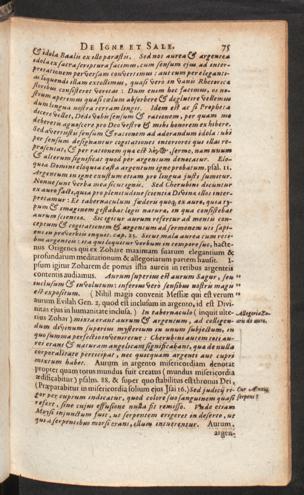 DE IGNE ET SALE. 75
& idola Baalis ex illo parastis. Sed nos aurea & argentea
idola ex sacra scriptura facimus, cum sensum ejus ad inter-
pretationem perversam convertimus: aut cum per eleganti-
am loquendi illam extollimus, quasi vero in vanis Rhetoricæ
floribus consisteret veritas: Dum enim hoc facimus, os no-
strum aperimus quasi cælum absorbere & deglutire vellemus
dum lingua nostra terram lingit. Idem est ac si Propheta
dicere vellet, Deus vobis sensum & rationem, per quam me
deberetis agnoscere pro Deo vestro & mihi honorem exhibere.
Sed avertistis sensum & rationem ad adorandum idola: ubi
per sensum designantur cogitationes interiores quæ illas re-
præsentat, & per rationem quæ est
sermo, nam unum
& alterum significat quod per argentum denotatur. Elo-
quia Domini eloquia casta argentum igne probatum. psal. 11.
Argentum in igne exustum etiam pro lingua justi sumitur.
Nonne sunt verba mea sicut ignis. Sed Cherubini dicuntur
ex auro fusili, quia pro plenitudine scientiæ Divinæ illos inter-
pretamur: Et tabernaculum fœderis quoque ex auro, quia ty-
pum & imaginem gestabat legis naturæ, in qua consistebat
aurum scientiæ. Sic igitur aurum refertur ad mentis con-
ceptum & cogitationem & argentum ad sermonem uti sapi-
ens in proverbiis inquit. cap. 25. Sicut mala aurea cum reti-
bus argenteis: ita qui loquitur verbum in tempore suo, hacte-
nus Origenes qui ex Zohare maximam suarum elegantium &
profundarum meditationum & allegoriarum partem hausit. I-
psum igitur Zoharem de pomis istis aureis in retibus argenteis
contentis audiamus. Aurum superius est aurum Sagur, seu
inclusum & involutum: inferius vero sensibus nostris magis
est expositum. (Nihil magis convenit Messiæ qui est verum
aurum Evilah Gen. 2. quod est inclusum in argento, id est Divi-
nitas ejus in humanitate inclusa.) In tabernaculo (inquit ulte-
rius Zohar) mixta erant aurum & argentum, ad collegen-
dum divinum superius mysterium in unum subjectum, in
quo summa perfectio inveniretur: Cherubini autem toti au-
rei erant & naturam angelicam significabant, quæ de nulla
corporalitate participat, nec quicquam argenti aut cupri
mixtum habet. Aurum in argento misericordiam denotat
propter quam totus mundus fuit creatus (mundus misericordia
ædificabitur) psalm. 88. & super quo stabilitus est thronus Dei,
(Præparabitur in misericordia solium ejus Jsai 16.) Sed judicii ri-
gor per cuprum indicatur, quod colore suo sanguinem quasi
refert, sine cujus effusione nulla sit remissio. Unde etiam
Moysi injunctum fuit, ut serpentem erigeret in deserto, ut
qui a serpentibus morsi erant, illum intuerentur. Aurum,
argen-
Allegoria Zo-
aris de auro.
Cur Æneus
serpens?